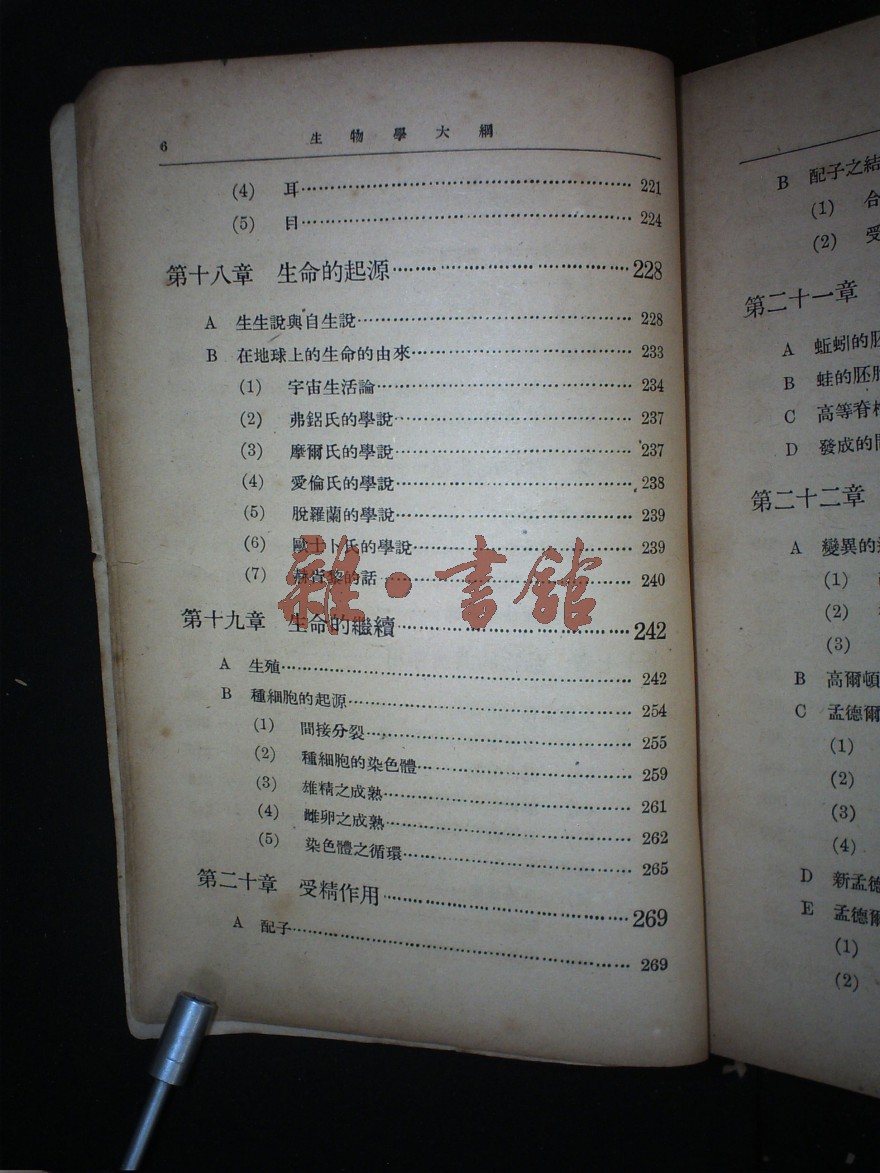 6 生物學大綱
(4) 耳 221
(5) 目 224
第十八章 生命的起源 228
A 生生說與自生說 228
B 在地球上的生命的由來 233
(1) 宇宙生活論 234
(2) 弗鋁氏的學說 237
(3) 摩爾氏的學說 237
(4) 愛倫氏的學說 238
(5) 脫羅蘭的學說 239
(6) 歐士卜氏的學說 239
(7) 赫胥黎的話 240
第十九章 生命的繼續 242
A 生殖 242
B 種細胞的起源 254
(1) 間接分裂 255
(2) 種細胞的染色體 259
(3) 雄精之成熟 261
(4) 雌卵之成熟 262
(5) 染色體之循環 265
第二十章 受精作用 269
A 配子 269
雜·書館
B 配子之結
(1) 合
(2) 受
第二十一章
A 蚯蚓的胚
B 蛙的胚胎
C 高等脊椎
D 發成的
第二十二章
A 變異的
(1)
(2)
(3)
B 高爾頓
C 孟德爾
(1)
(2)
(3)
(4)
D 新孟德
E 孟德爾
(1)
(2)